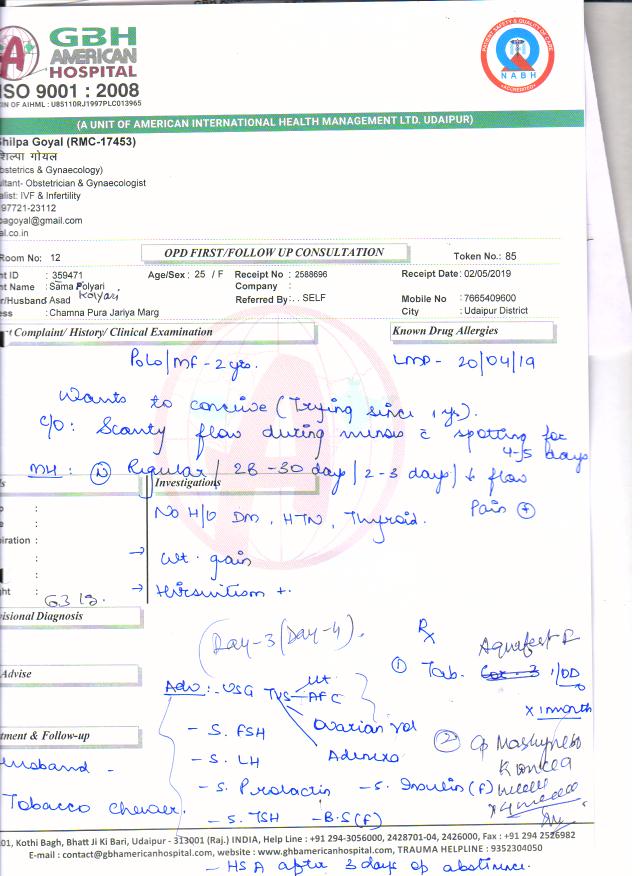 GBH
AMERICAN
HOSPITAL
ISO 9001 : 2008
CIN OF AIHML : U85110RJ1997PLC013965
PATIENT SAFETY & QUALITY OF CARE
NABH
ACCREDITED
(A UNIT OF AMERICAN INTERNATIONAL HEALTH MANAGEMENT LTD. UDAIPUR)
Shilpa Goyal (RMC-17453)
शिल्पा गोयल
bstetrics & Gynaecology)
ultant- Obstetrician & Gynaecologist
ialist: IVF & Infertility
97721-23112
pagoyal@gmail.com
al.co.in
Room No: 12
OPD FIRST/FOLLOW UP CONSULTATION
Token No.: 85
nt ID : 359471 Age/Sex : 25 / F Receipt No : 2588696 Receipt Date: 02/05/2019
nt Name : Sama Polyari Kolyari Company :
r/Husband Asad Referred By : . . SELF Mobile No : 7665409600
ess : Chamna Pura Jariya Marg City : Udaipur District
t Complaint/ History/ Clinical Examination
Known Drug Allergies
P0L0/MF - 2 yrs. LMP - 20/04/19
Wants to conceive (Trying since 1 yr).
C/O: Scanty flow during menses c̄ spotting for 4-5 days
MH : N Regular / 28 - 30 days / 2-3 days / ↓ flow
Pain +
ls
Investigations
No H/O DM, HTN, Thyroid.
piration :
→ Wt. gain
ght : 63 → Hirsuitism +.
visional Diagnosis
(Day-3 (Day-4).
Rx
Advise
① Tab. 1/OD
x 1 month
Adv :- USG TVS - AFC
ut
Ovarian vol
Adenexa
- S. FSH
- S. LH
- S. Prolactin - S. Insulin (F)
- S. TSH - B.S (F)
②
tment & Follow-up
Husband -
Tobacco chewer.
01, Kothi Bagh, Bhatt Ji Ki Bari, Udaipur - 313001 (Raj.) INDIA, Help Line : +91 294-3056000, 2428701-04, 2426000, Fax : +91 294 2526982
E-mail : contact@gbhamericanhospital.com, website : www.gbhamericanhospital.com, TRAUMA HELPLINE : 9352304050
- HSA after 3 days of abstinence.